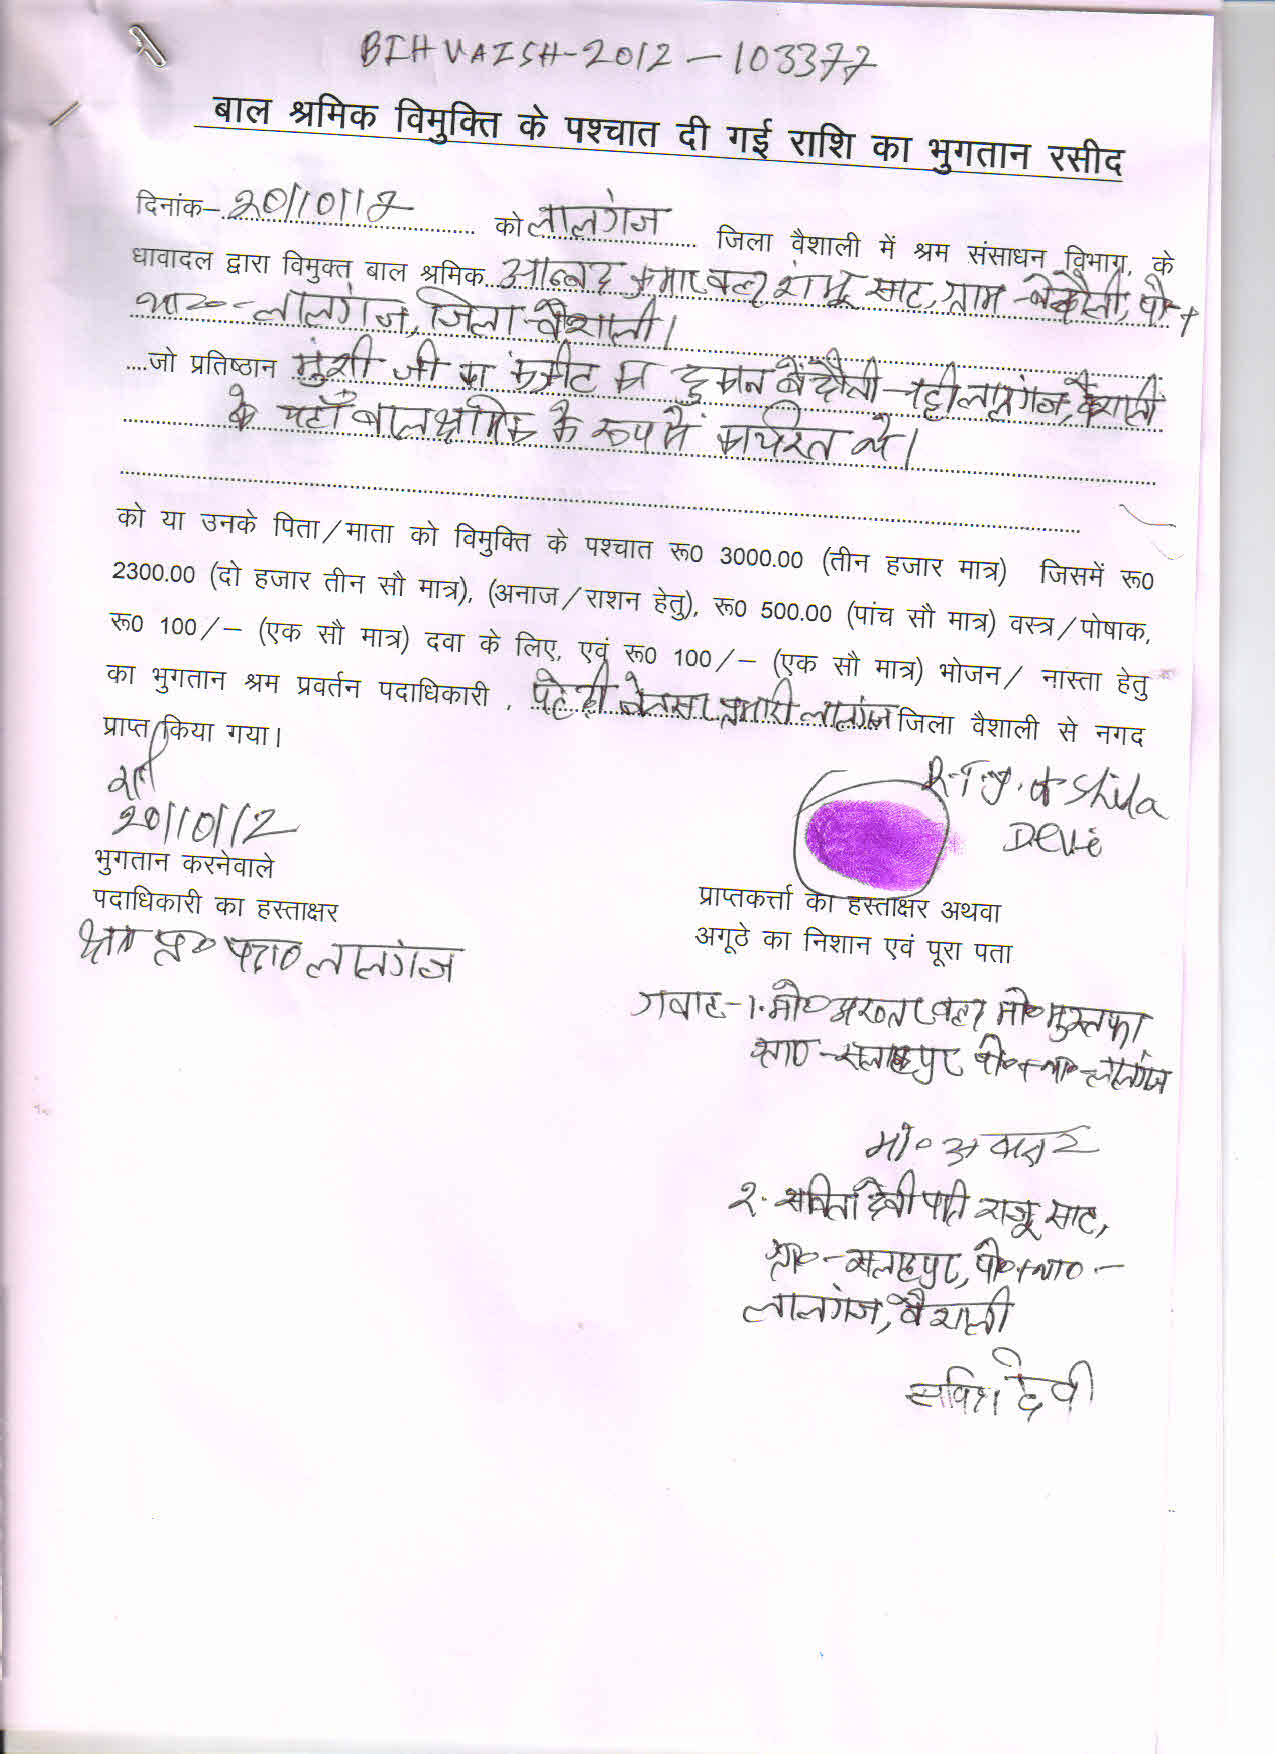 BIHVAISH-2012-103377
बाल श्रमिक विमुक्ति के पश्चात दी गई राशि का भुगतान रसीद
दिनांक–20/10/12 को लालगंज जिला वैशाली में श्रम संसाधन विभाग, के
धावादल द्वारा विमुक्त बाल श्रमिक शंभू साह, ग्राम-
लालगंज, जिला-वैशाली।
....जो प्रतिष्ठान मुंशी जी का लालगंज, वैशाली
के यहाँ बाल श्रमिक के रूप में कार्यरत थे।
को या उनके पिता/माता को विमुक्ति के पश्चात रू0 3000.00 (तीन हजार मात्र) जिसमें रू0
2300.00 (दो हजार तीन सौ मात्र), (अनाज/राशन हेतु), रू0 500.00 (पांच सौ मात्र) वस्त्र/पोषाक,
रू0 100/– (एक सौ मात्र) दवा के लिए, एवं रू0 100/– (एक सौ मात्र) भोजन/ नास्ता हेतु
का भुगतान श्रम प्रवर्तन पदाधिकारी , लालगंज जिला वैशाली से नगद
प्राप्त किया गया।
20/10/12
R.T.I. of Shila
Devi
भुगतान करनेवाले
पदाधिकारी का हस्ताक्षर
श्रम प्र० पदा० लालगंज
प्राप्तकर्त्ता का हस्ताक्षर अथवा
अगूठे का निशान एवं पूरा पता
गवाह-1. मो० मो० मुस्तफा
पो०+था०-लालगंज
मो०
2. सविता देवी पति राजू साह,
पो०+था०-
लालगंज, वैशाली
सविता देवी